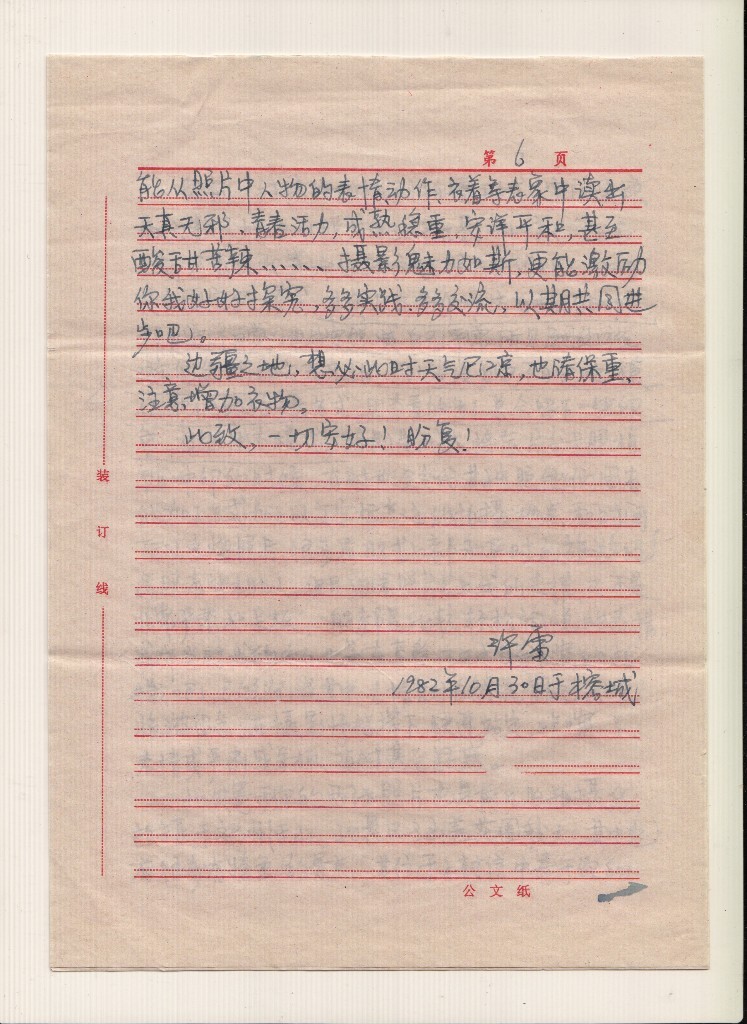 第 6 页
能从照片中人物的表情动作、衣着等表象中读出
天真无邪、青春活力、成熟稳重、安详平和，甚至
酸甜苦辣……摄影魅力如斯，更能激励
你我好好探究，多多实践，多多交流，以期共同进
步吧。
边疆之地，想必此时天气已凉，也请保重、
注意增加衣物。
此致，一切安好！盼复！
装
订
线
许雷
1982年10月30日于榕城
公 文 纸